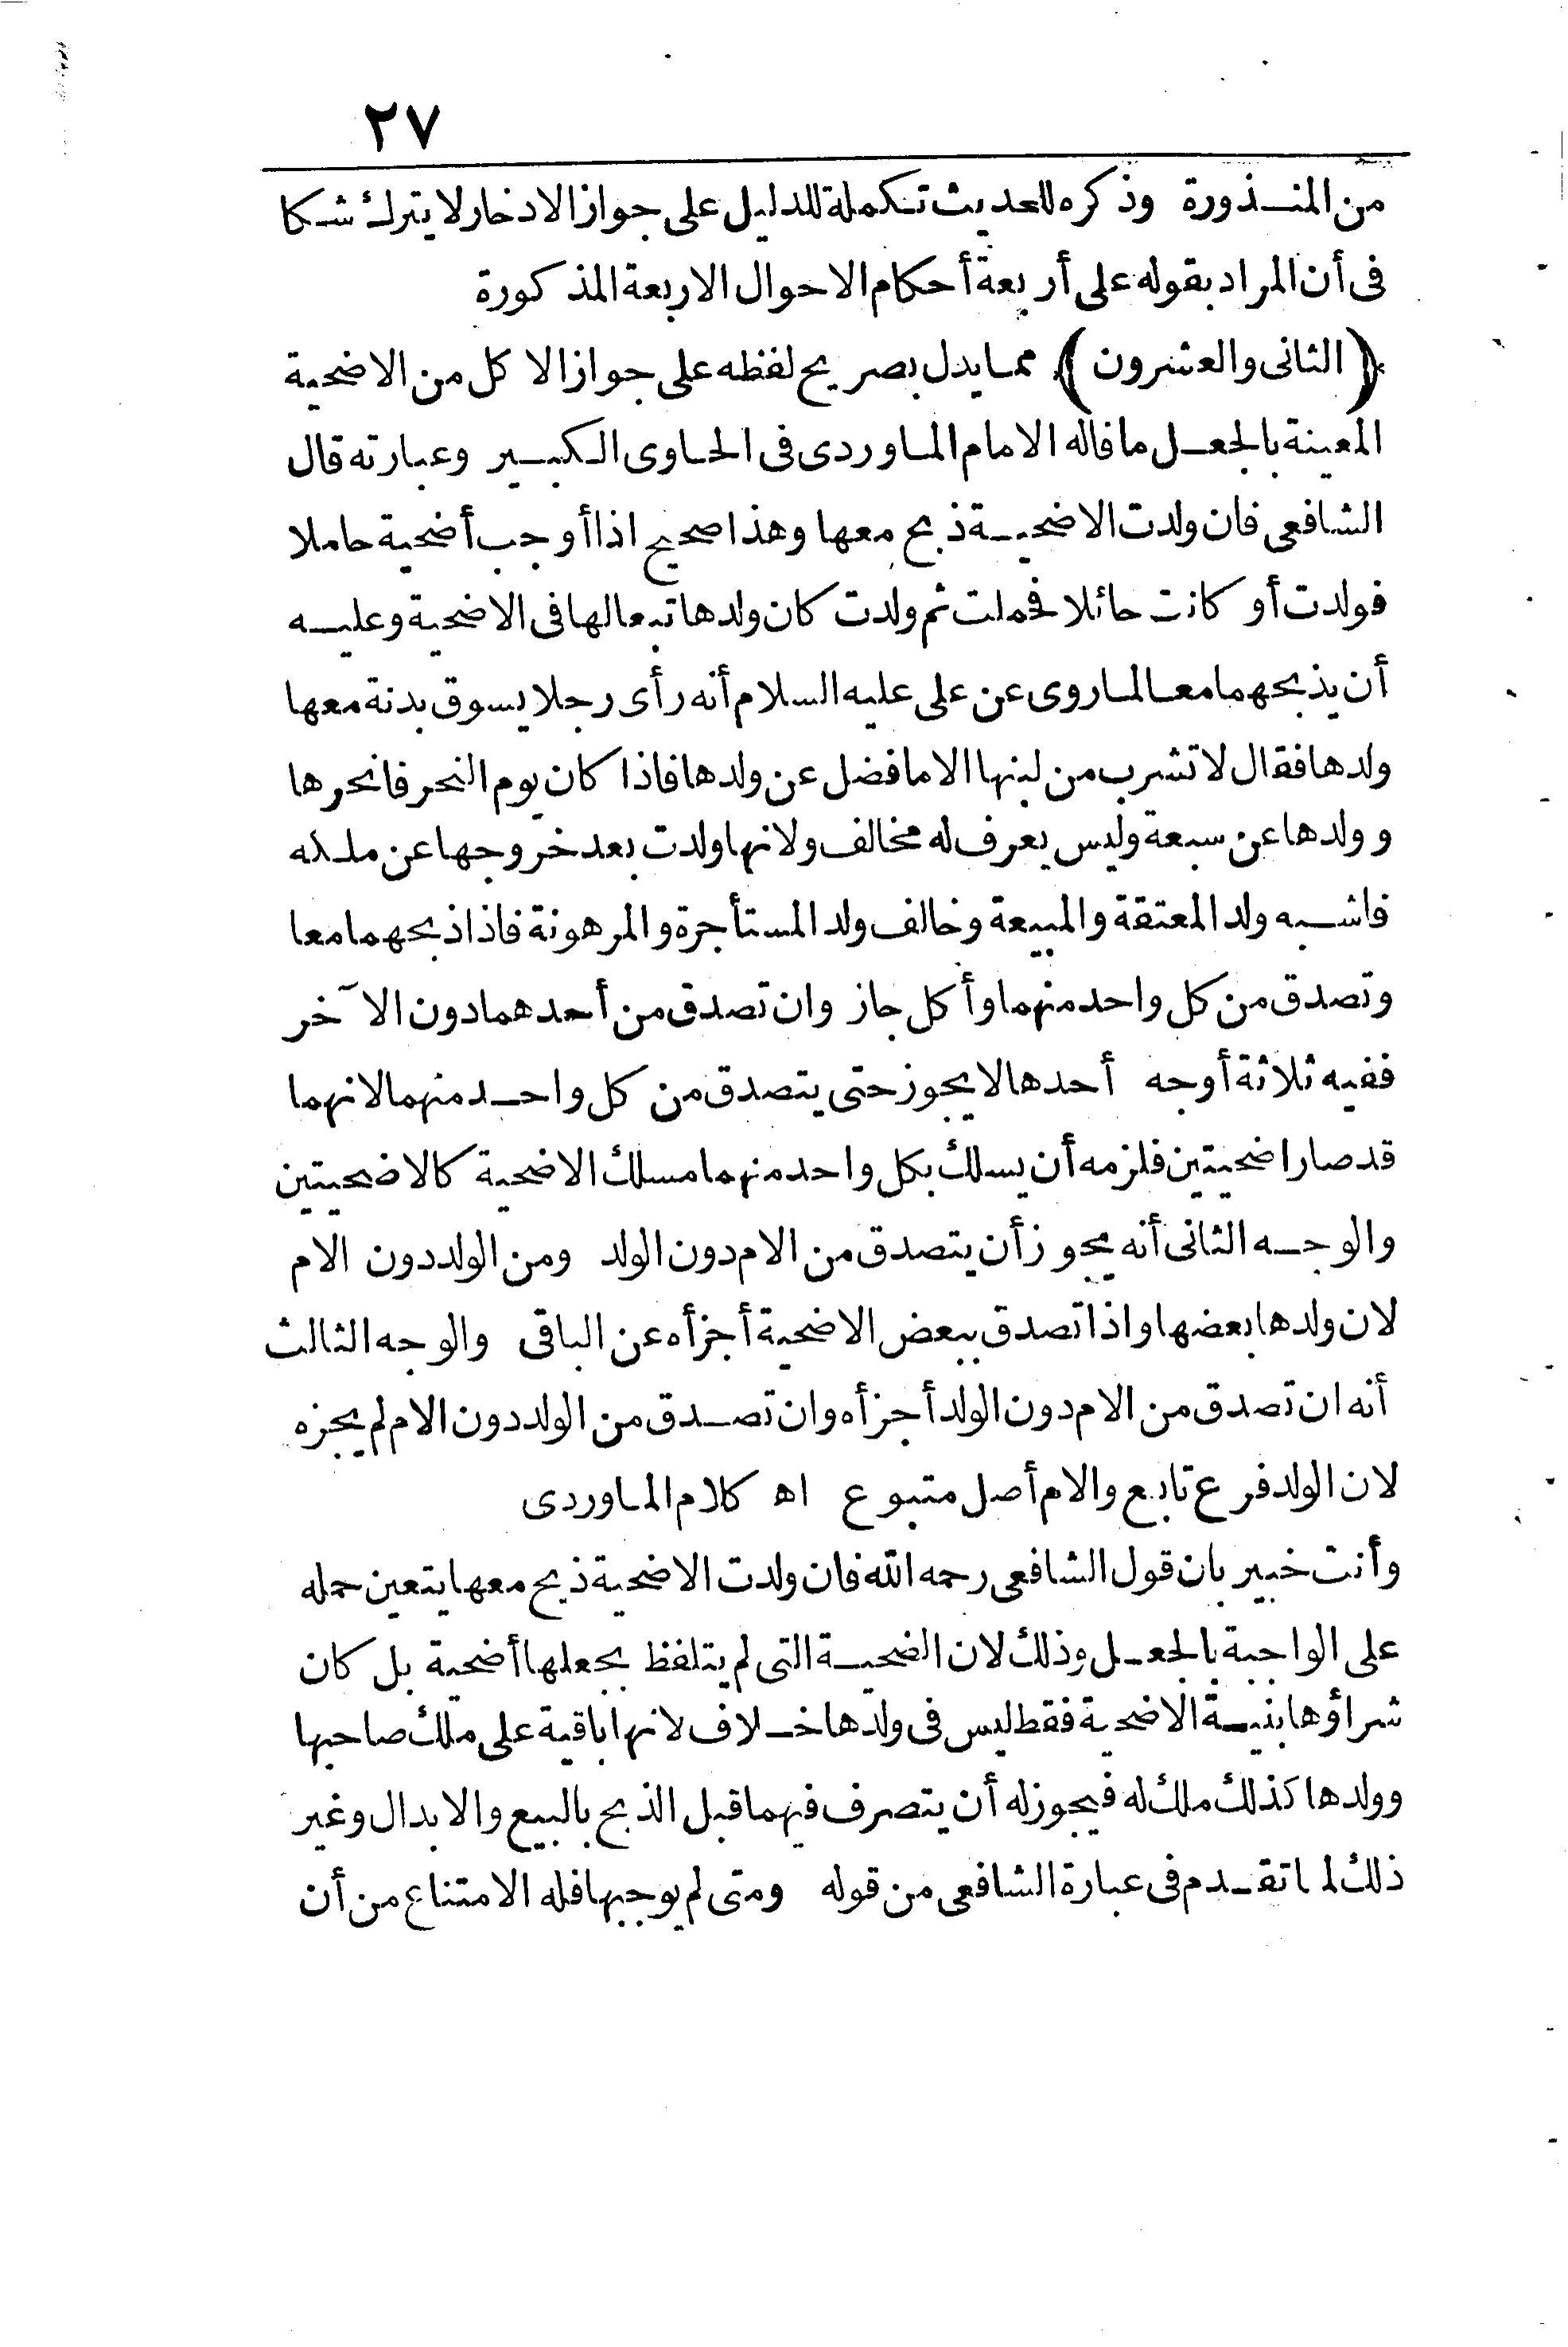 ٢٧
من المنذورة وذكره للحديث تكملة للدليل على جواز الادخار لا يترك شكا
فى أن المراد بقوله على أربعة أحكام الاحوال الاربعة المذكورة
﴿ الثانى والعشرون ﴾ مما يدل بصريح لفظه على جواز الاكل من الاضحية
المعينة بالجعل ما قاله الامام الماوردى فى الحاوى الكبير وعبارته قال
الشافعى فان ولدت الاضحية ذبح معها وهذا صحيح اذا أوجب أضحية حاملا
فولدت أو كانت حائلا فحملت ثم ولدت كان ولدها تبعا لها فى الاضحية وعليه
أن يذبحهما معا لما روى عن على عليه السلام أنه رأى رجلا يسوق بدنة معها
ولدها فقال لا تشرب من لبنها الا ما فضل عن ولدها فاذا كان يوم النحر فانحرها
وولدها عن سبعة وليس يعرف له مخالف ولانها ولدت بعد خروجها عن ملكه
فاشبه ولد المعتقة والمبيعة وخالف ولد المستأجرة والمرهونة فاذا ذبحهما معا
وتصدق من كل واحد منهما وأكل جاز وان تصدق من أحدهما دون الآخر
ففيه ثلاثة أوجه أحدها لا يجوز حتى يتصدق من كل واحد منهما لانهما
قد صارا ضحيتين فلزمه أن يسلك بكل واحد منهما مسلك الاضحية كالاضحيتين
والوجه الثانى أنه يجوز أن يتصدق من الام دون الولد ومن الولد دون الام
لان ولدها بعضها واذا تصدق ببعض الاضحية أجزأه عن الباقى والوجه الثالث
أنه ان تصدق من الام دون الولد أجزأه وان تصدق من الولد دون الام لم يجزه
لان الولد فرع تابع والام أصل متبوع اه كلام الماوردى
وأنت خبير بان قول الشافعى رحمه الله فان ولدت الاضحية ذبح معها يتعين حمله
على الواجبة بالجعل وذلك لان الضحية التى لم يتلفظ بجعلها أضحية بل كان
شراؤها بنية الاضحية فقط ليس فى ولدها خلاف لانها باقية على ملك صاحبها
وولدها كذلك ملك له فيجوز له أن يتصرف فيهما قبل الذبح بالبيع والابدال وغير
ذلك لما تقدم فى عبارة الشافعى من قوله ومتى لم يوجبها فله الامتناع من أن